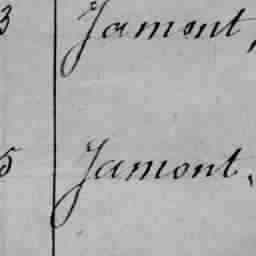 3 Jamont,
5 Jamont,